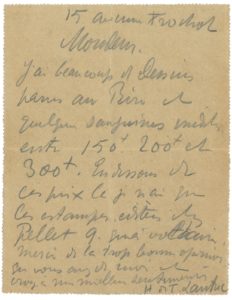 15 avenue Frochot
Monsieur,
J'ai beaucoup de dessins
parus au Rire et
quelques sanguines inédites
entre 150f 200f et
300f. En dessous de
ces prix là je n'ai que
les estampes éditées chez
Pellet 9. quai Voltaire
merci de la trop bonne opinion
que vous avez de moi
et mes meilleurs
H de T. Lautrec